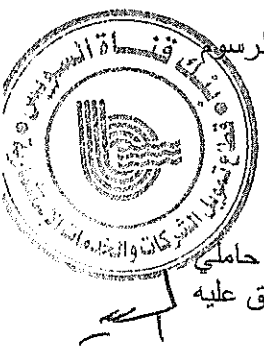 لرسوم
بنك قناة السويس
قطاع تمويل الشركات والخدمات
حاملي
ق عليه